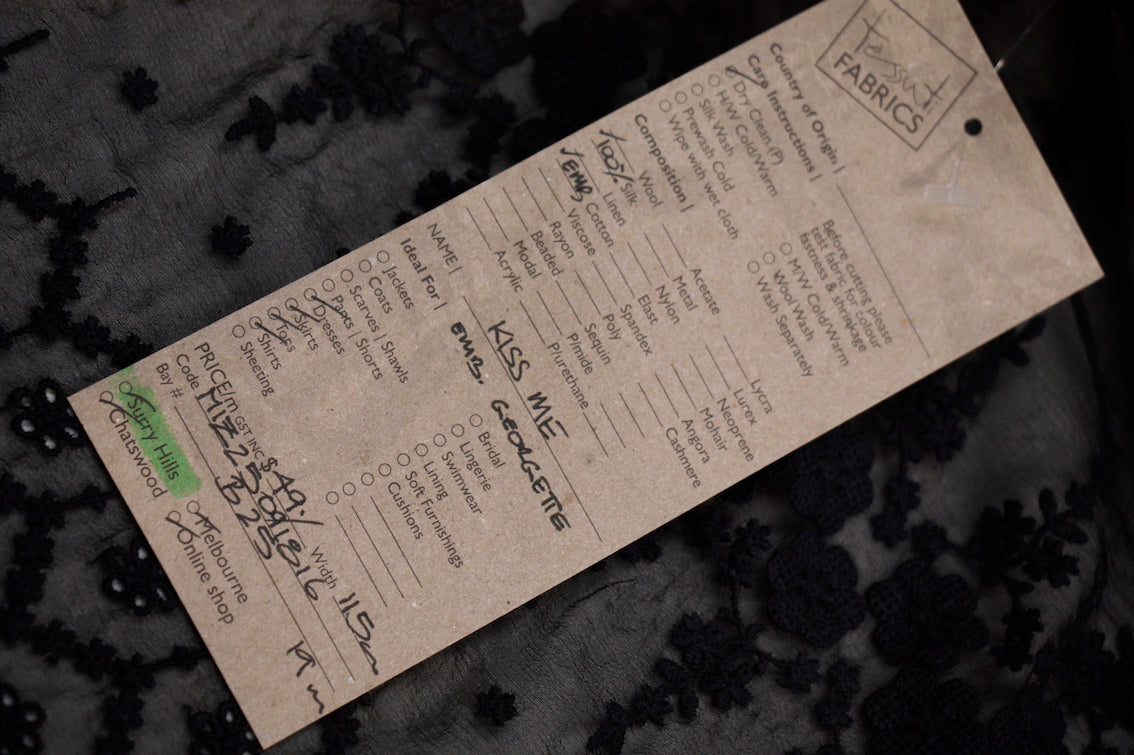 Tessuti
FABRICS
Country of Origin |
Care Instructions |
Before cutting please
test fabric for colour
fastness & shrinkage
Dry Clean (P)
H/W Cold/Warm
Silk Wash
Prewash Cold
Wipe with wet cloth
M/W Cold/Warm
Wool Wash
Wash Separately
Composition |
Wool
100% Silk
Linen
√ EMB Cotton
Viscose
Rayon
Beaded
Modal
Acrylic
Acetate
Metal
Nylon
Elast
Spandex
Poly
Sequin
P/mide
P/urethane
Lycra
Lurex
Neoprene
Mohair
Angora
Cashmere
NAME | KISS ME
EMB. GEORGETTE
Ideal For |
Jackets
Coats
Scarves | Shawls
Pants | Shorts
Dresses
Skirts
Tops
Shirts
Sheeting
Bridal
Lingerie
Swimwear
Lining
Soft Furnishings
Cushions
PRICE/m GST INC $ 49/ Width 115cm
Code
Bay # B25 19m
Surry Hills
Chatswood
Melbourne
Online shop